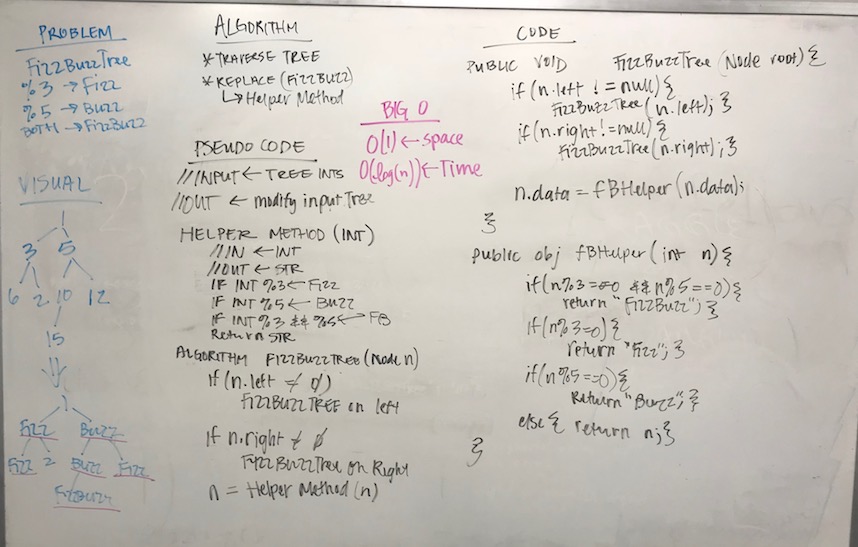 PROBLEM
FizzBuzzTree
%3 → Fizz
%5 → Buzz
BOTH → FizzBuzz
VISUAL
1
3 5
6 2 10 12
15
1
Fizz Buzz
Fizz 2 Buzz Fizz
FizzBuzz
ALGORITHM
* TRAVERSE TREE
* REPLACE (FIZZBUZZ)
↳ Helper Method
BIG O
O(1) ← space
O(log(n)) ← Time
PSEUDO CODE
//INPUT ← TREE INTS
//OUT ← modify input Tree
HELPER METHOD (INT)
//IN ← INT
//OUT ← STR
IF INT %3 ← Fizz
IF INT %5 ← Buzz
IF INT %3 && %5 ← FB
Return STR
ALGORITHM FIZZBUZZTREE (Node n)
if (n.left ≠ ∅)
FIZZBUZZTREE on left
If n.right ≠ ∅
FizzBuzzTree on Right
n = Helper Method (n)
CODE
PUBLIC VOID FizzBuzzTree (Node root) {
if (n.left != null) {
FizzBuzzTree (n.left); }
if (n.right != null) {
FizzBuzzTree (n.right); }
n.data = fBHelper (n.data);
}
public obj fBHelper (int n) {
if (n%3 ==0 && n%5 ==0) {
return "FizzBuzz"; }
if (n%3=0) {
return "Fizz"; }
if (n%5 ==0) {
Return "Buzz"; }
else { return n; }
}